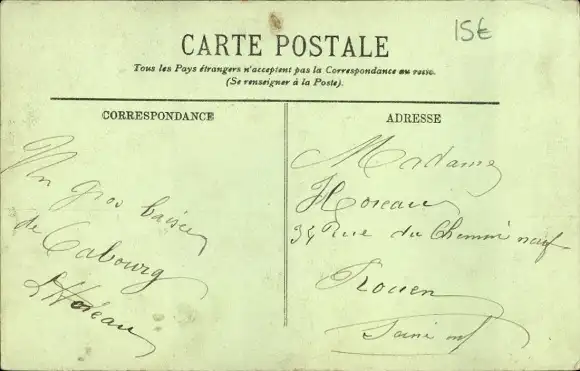 15€
CARTE POSTALE
Tous les Pays étrangers n'acceptent pas la Correspondance au verso.
(Se renseigner à la Poste).
CORRESPONDANCE
ADRESSE
Un gros baiser
de Cabourg
L Horeau
Madame
Horeau
34 Rue du Chemin neuf
Rouen
Seine inf